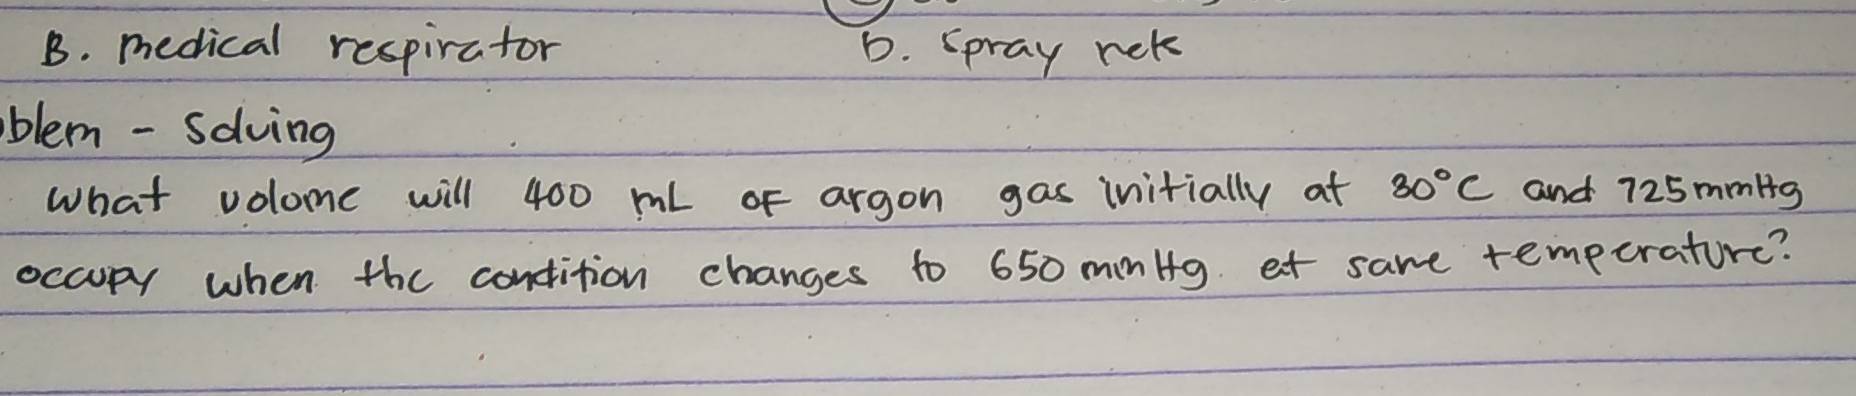 B. Medical respirator D. spray nek
blem - Solving
What volome will 400 mL OF argon gas initially at 30°C and 725mmHg
occupy when the condition changes to 650 mmHg. at same temperature?